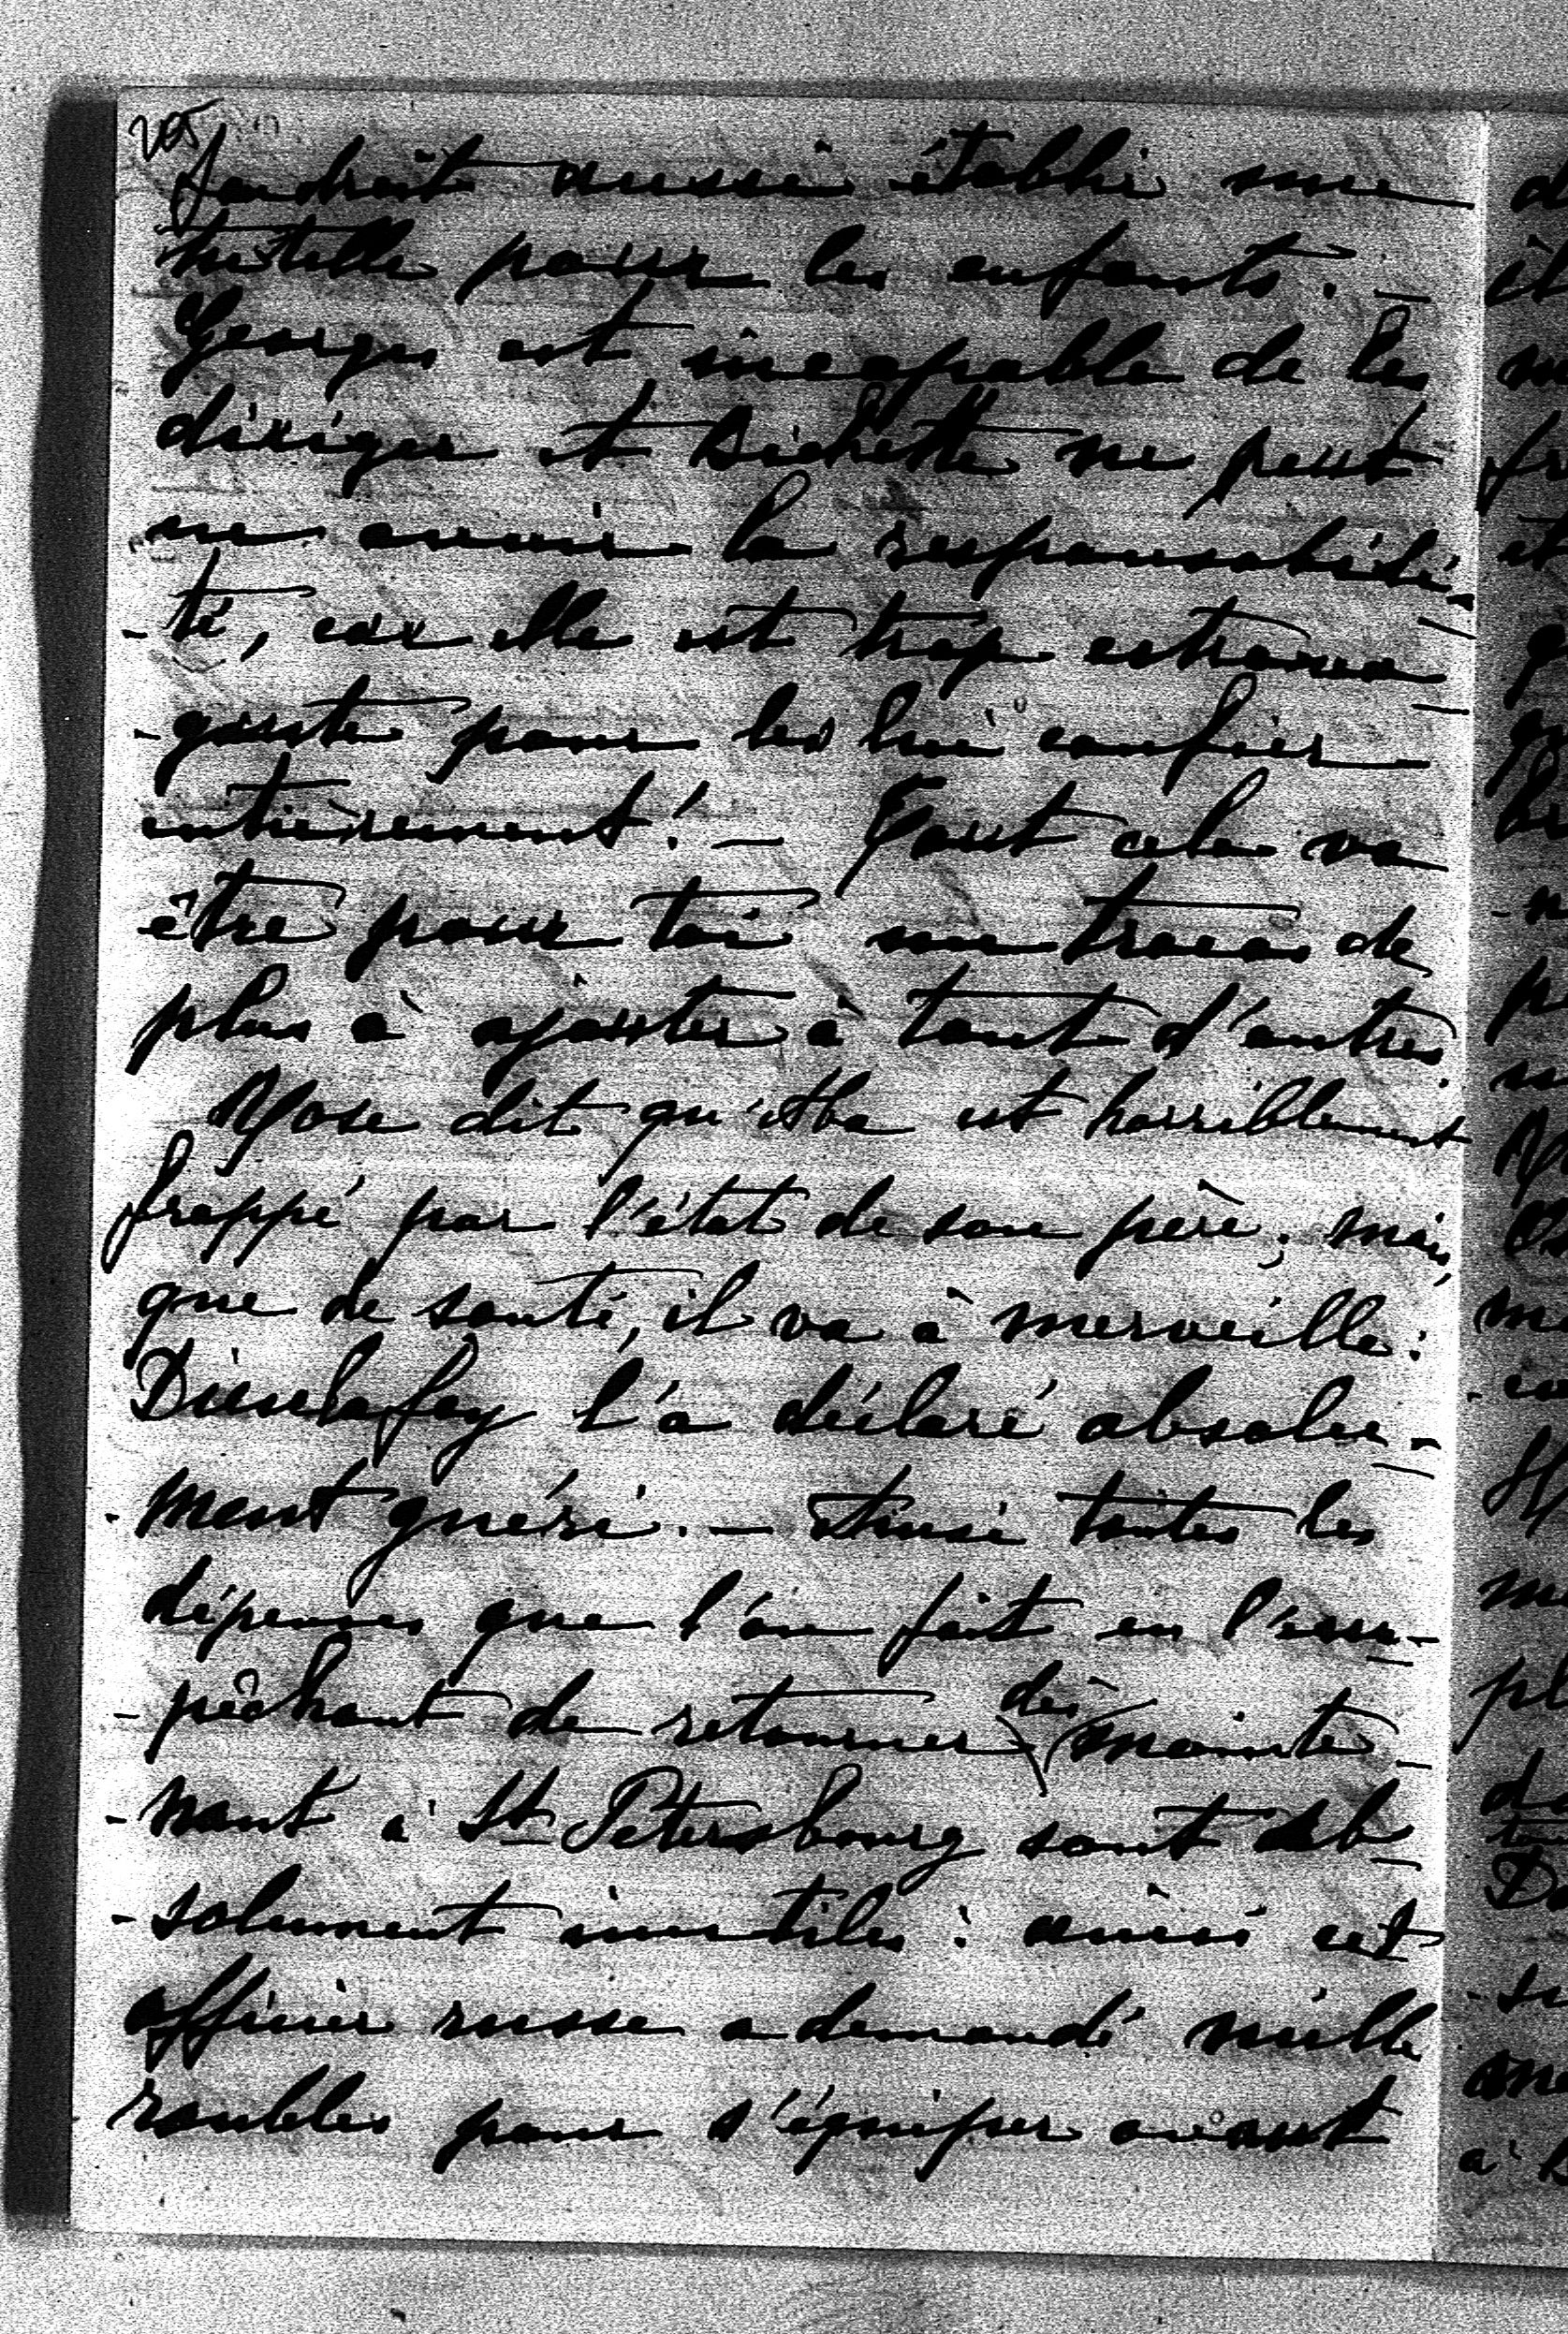 205
faudrait aussi établir une
tutelle pour les enfants. –
Georges est incapable de les
diriger et Bichette ne peut
en avoir la responsabili-
-té, car elle est trop extrava-
-gante pour les lui confier
entièrement! – Tout cela va
être pour toi un tracas de
plus à ajouter à tant d'autres
Yose dit qu'Aba est horriblement
frappé par l'état de son père; mais
que de santé, il va à merveille:
Dieulafoy l'a déclaré absolu-
-ment guéri. – Ainsi toutes les
dépenses que l'on fait en l'em-
-pêchant de retourner dès mainte-
-nant à St Petersbourg sont ab-
-solument inutiles: ainsi cet
officier russe a demandé mille
roubles pour s'équiper avant